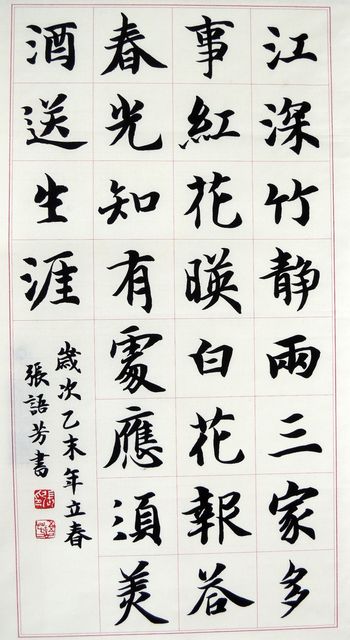 江深竹靜兩三家多
事紅花暎白花報荅
春光知有處應須美
酒送生涯
歲次乙未年立春
張語芳書